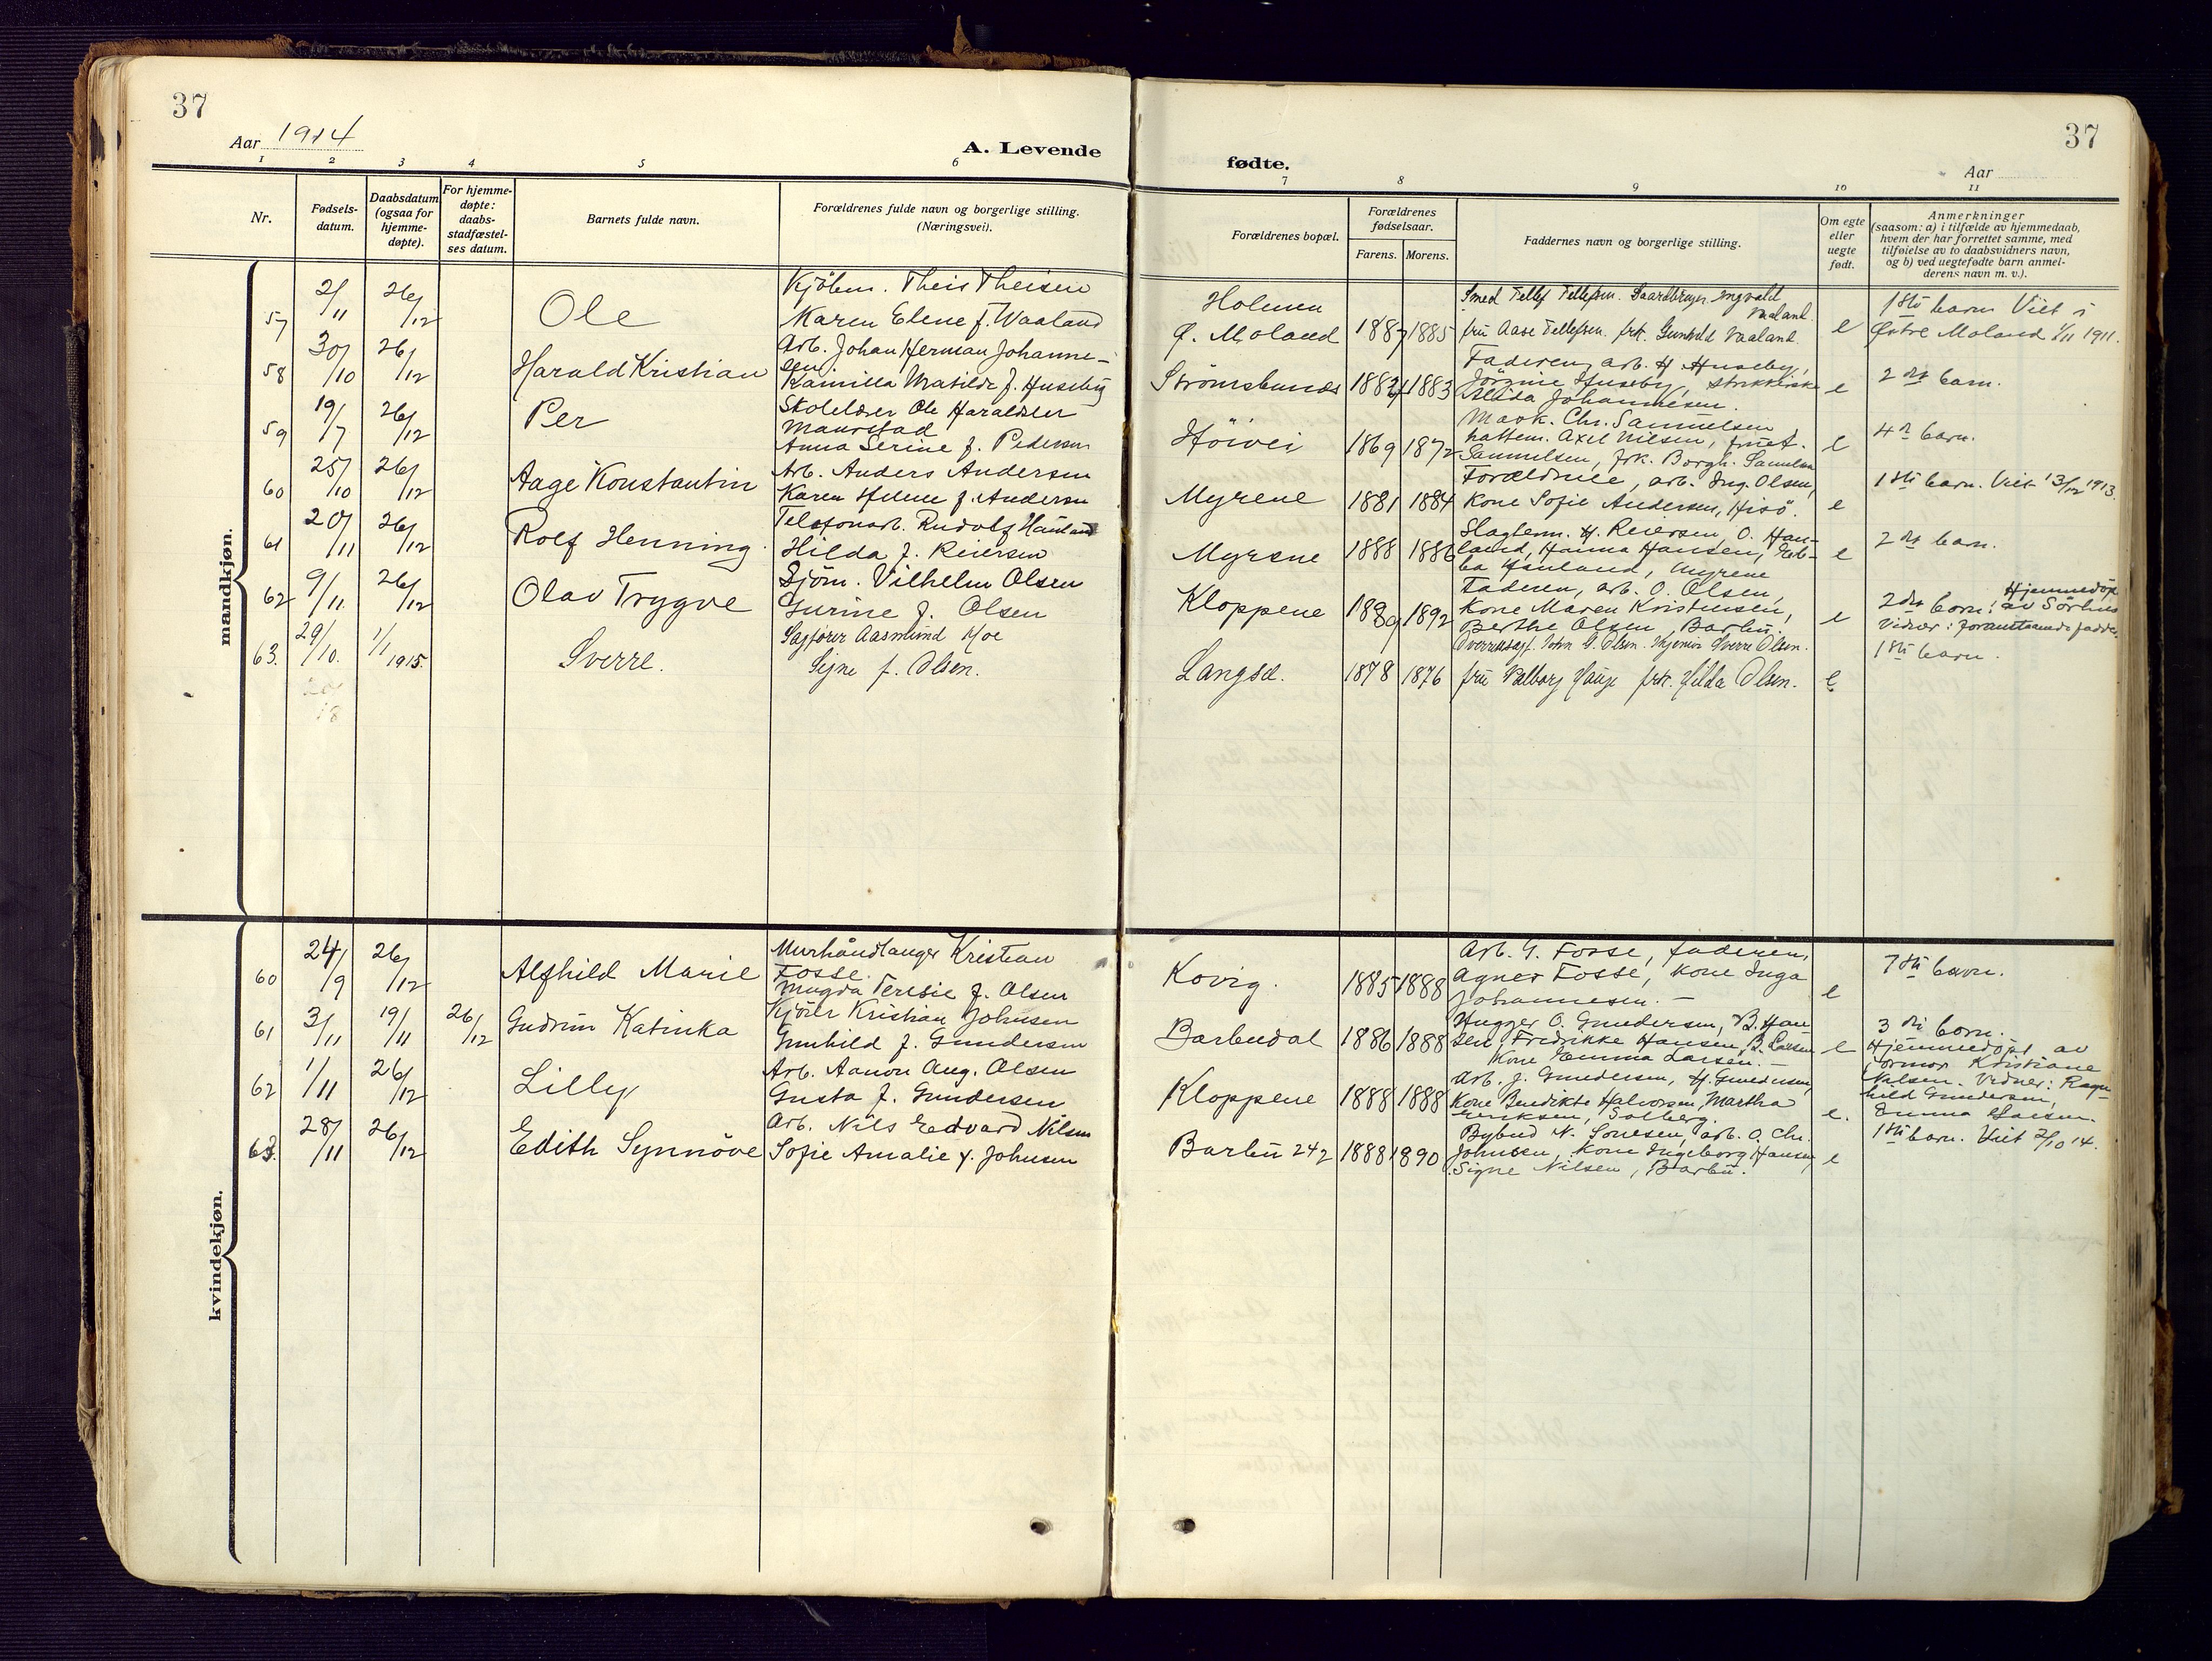 37
37
Aar 1914
A. Levende
fødte.
Aar
1 2 3 4 5 6 7 8 9 10 11
Nr.
Fødsels-
datum.
Daabsdatum
(ogsaa for
hjemme-
døpte).
For hjemme-
døpte:
daabs-
stadfæstel-
ses datum.
Barnets fulde navn.
Forældrenes fulde navn og borgerlige stilling.
(Næringsvei).
Forældrenes bopæl.
Forældrenes
fødselsaar.
Farens. Morens.
Faddernes navn og borgerlige stilling.
Om egte
eller
uegte
født.
Anmerkninger
(saasom: a) i tilfælde av hjemmedaab,
hvem der har forrettet samme, med
tilføielse av to daabsvidners navn,
og b) ved uegtefødte barn anmel-
derens navn m. v.).
mandkjøn.
57 2/11 26/12 Ole
Kjöbm. Theis Theisen
Karen Elene f. Waaland
Holmen
Ø. Moland 1887 1885
Smed Tellef Tellefsen. Gaardbruger Ingvald
Vaaland.
fru Aase Tellefsen. frk. Gunhild Vaaland. e
1ste barn Viet i
Østre Moland 1/11 1911.
58 30/10 26/12 Harald Kristian
Arb. Johan Herman Johanne-
sen
Kamilla Matilde f. Huseby
Strömsbunes 1882 1883
Faderen, arb. H Huseby,
Jörgine Huseby, strikkerske
Alida Johannesen. e
2det barn.
59 19/7 26/12 Per
Skolelærer Ole Haraldsen
Maurstad
Anna Serine f. Pedersen
Höivei 1869 1872
Mask. Chr. Samuelsen
hattem. Axel Nilsen, fru A.
Samuelsen, frk. Borgh. Samuelsen e
4de barn.
60 25/10 26/12 Aage Konstantin
Arb. Anders Andersen
Karen Helene f. Andersen
Myrene 1881 1884
Forældrene, arb. Ing. Olsen,
Kone Sofie Andersen, Hisö. e
1ste barn. Viet 13/12 1913.
61 20/11 26/12 Rolf Henning
Telefonarb. Rudolf Hauland
Hilda f. Reiersen
Myrene 1888 1886
Slagterm. H. Reiersen, O. Hau-
land, Hanna Hansen, Eb-
ba Hauland, Myrene e
2det barn.
62 9/11 26/12 Olav Trygve
Sjöm. Vilhelm Olsen
Gurine f. Olsen
Kloppene 1889 1892
Faderen, arb. O. Olsen,
Kone Maren Kristensen,
Berthe Olsen, Barbu. e
2det barn. Hjemmedöpt
av
Vidner: foranstaaende faddere
63. 29/10. 1/1 1915. Sverre.
Sagfører Aasmund Moe
Signe f. Olsen.
Langsæ. 1878 1876
Overretssagf. John G. Olsen. Sverre Olsen.
fru Valborg Hauge frk. Hilda Olsen. e
1ste barn.
kvindekjøn.
60 24/9 26/12 Alfhild Marie
Murhåndlanger Kristian
Fosse.
Magda Teresie f. Olsen
Kovig. 1885 1888
Arb. G. Fosse, faderen,
Agnes Fosse, Kone Inga
Johannesen. — e
7de barn.
61 3/11 19/11 26/12 Gudrun Katinka
Kjører Kristian Johnsen
Gunhild f. Gundersen
Barbudal 1886 1888
Hugger O. Gundersen, B. Han-
sen, Fredrikke Hansen, B. Larsen
Kone Emma Larsen. — e
3die barn.
Hjemmedöpt av
jormor Kristiane
Nilsen. Vidner: Ragn-
hild Gundersen,
Emma Larsen.
62 1/11 26/12 Lilly
Arb. Aanon Aug. Olsen
Gusta f. Gundersen
Kloppene 1888 1888
Arb. J. Gundersen, H. Gundersen,
Kone Bendikte Halvorsen, Martha
Eriksen, Solberg. e.
63. 28/11 26/12 Edith Synnöve
Arb. Nils Edvard Nilsen
Sofie Amalie f. Johnsen
Barbu 242 1888 1890
Bybud N. Sonesen, arb. O. Chr.
Johnsen, Kone Ingeborg Hansen,
Signe Nilsen, Barbu. e
1ste barn. Viet 2/10 14.